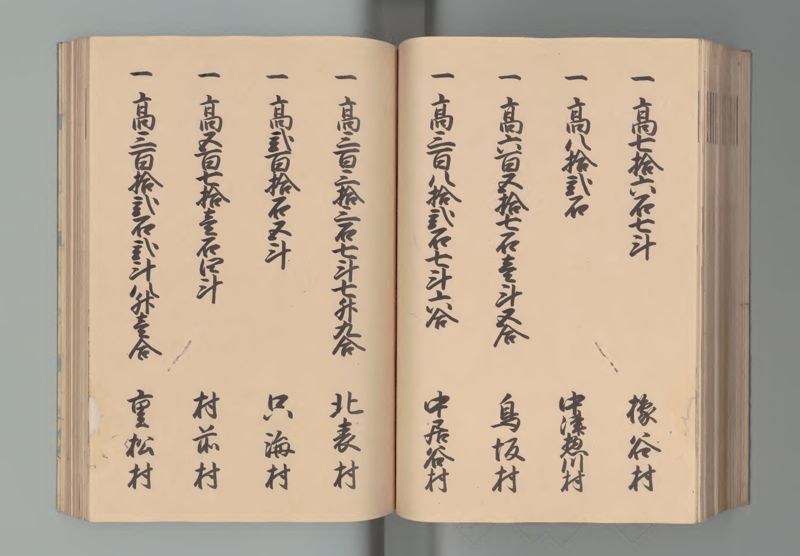 一 高七拾六石七斗 橡谷村
一 高八拾弐石 中津惣川村
一 高六百五拾七石壱斗五合 鳥坂村
一 高三百八拾弐石七斗六合 中居谷村
一 高三百三拾三石七斗七升九合 北表村
一 高弐百拾石五斗 只海村
一 高五百七拾壱石四斗 村前村
一 高三百拾弐石弐斗八升壱合 重松村